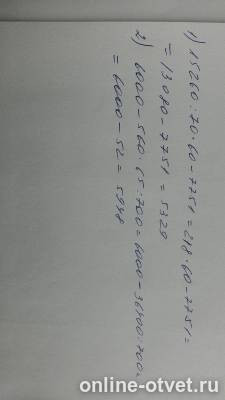 1) 15260:70·60-7751=218·60-7751=
=13080-7751=5329
2) 6000-560·65:700=6000-36400:700=
=6000-52=5948
online-otvet.ru